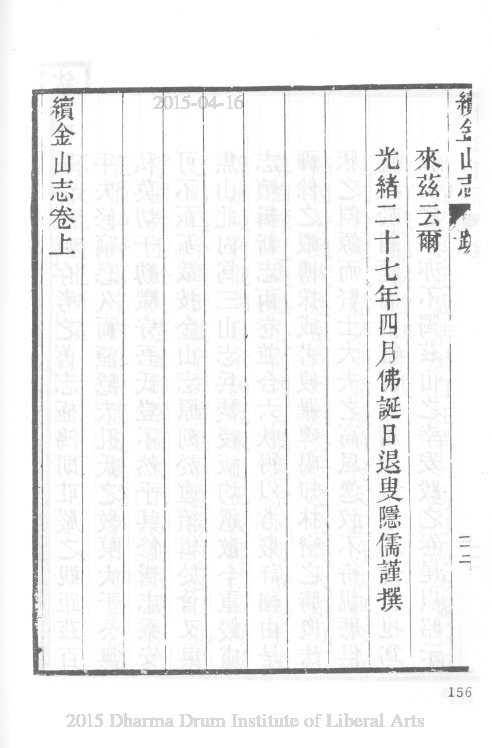 續金山志 跋 二
來茲云爾
光緒二十七年四月佛誕日退叟隱儒謹撰
續金山志卷上
2015-04-16
156
2015 Dharma Drum Institute of Liberal Arts